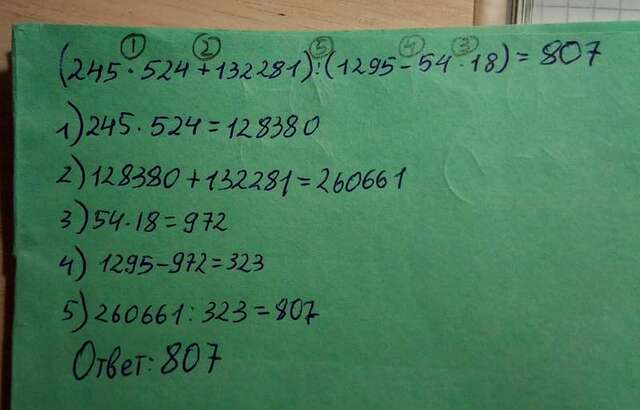 ① ② ⑤ ④ ③
(245·524+132281):(1295-54·18)=807
1) 245·524=128380
2) 128380+132281=260661
3) 54·18=972
4) 1295-972=323
5) 260661:323=807
Ответ: 807